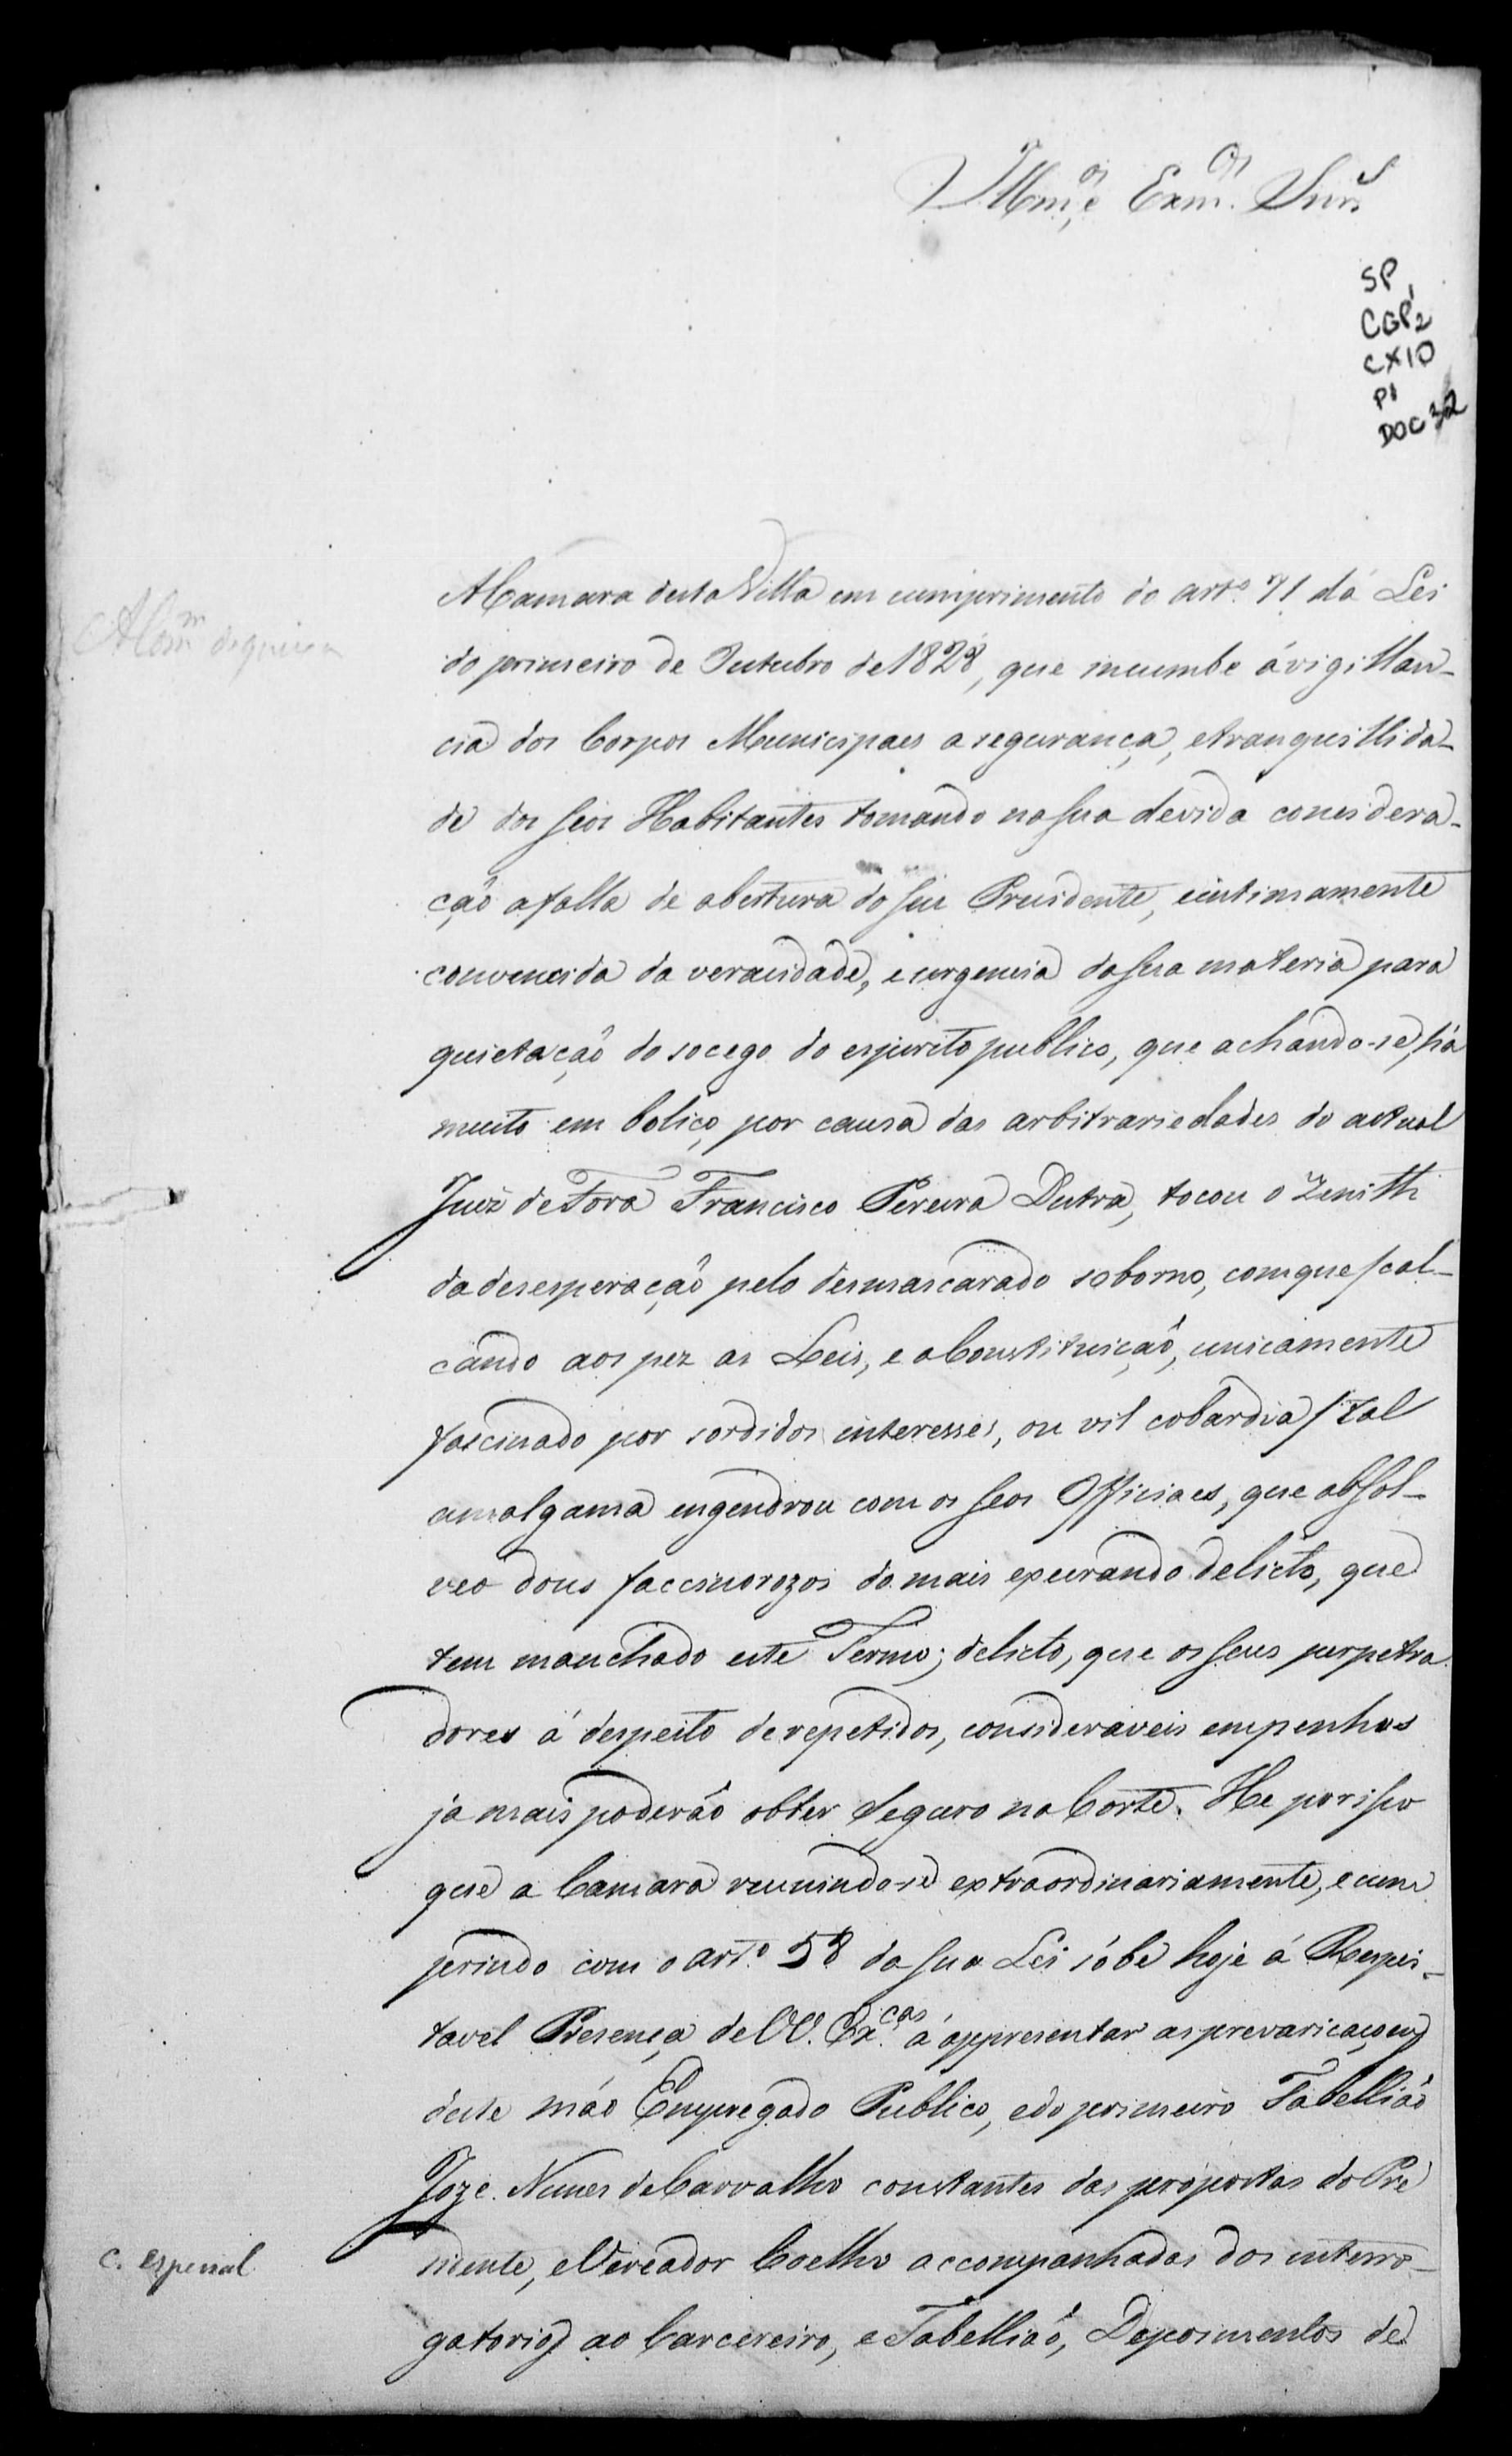 Illm.os e Exm.os Snrs
SP
CGP2
CX10
P1
DOC 32
A Camara desta Villa em cumprimento do art.o 71 da Lei
do primeiro de Outubro de 1828, que incumbe á vigillan-
cia dos Corpos Municipaes a segurança, e tranquillida-
de dos seos Habitantes tomando na sua devida considera-
ção a falla de abertura do seu Presidente, e intimamente
convencida da veracidade, e urgencia da sua materia para
quietação do socego do espirito publico, que achando-se já
muito em boliço por causa das arbitrariedades do actual
Juiz de Fora Francisco Pereira Dutra, tocou o Zenith
da desesperação pelo desmascarado soborno, com que (cal-
cando aos pez as Leis, e a Constituição, unicamente
fascinado por sordidos interesses, ou vil cobardia) tal
amalgama engendrou com os seos Officiaes, que absol-
veo dous faccinorozos do mais execrando delicto, que
tem manchado este Termo; delicto, que os seus perpetra
dores á despeito de repetidos, consideraveis empenhos
jamais poderão obter Seguro na Corte. He por isso
que a Camara reunindo-se extraordinariamente, e cum
prindo com o art.o 58 da sua Lei sóbe hoje á Respei-
tavel Presença de VV. Ex.cas á appresentar as prevaricaçoens
deste máo Empregado Publico, e do primeiro Tabellião
Joze Nunes de Carvalho constantes das propostas do Pre
sidente, e Vereador Coelho accompanhadas dos interro-
c. especial
gatorios ao Carcereiro, e Tabellião, Depoimentos de